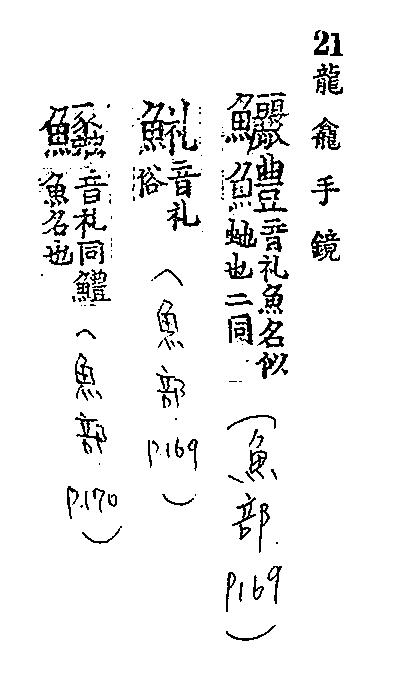 21 龍龕手鏡
鱺鱧音礼魚名似虵也二同 (魚部 P169)
音礼俗 (魚部 P.169)
音礼同鱧魚名也 (魚部 P.170)